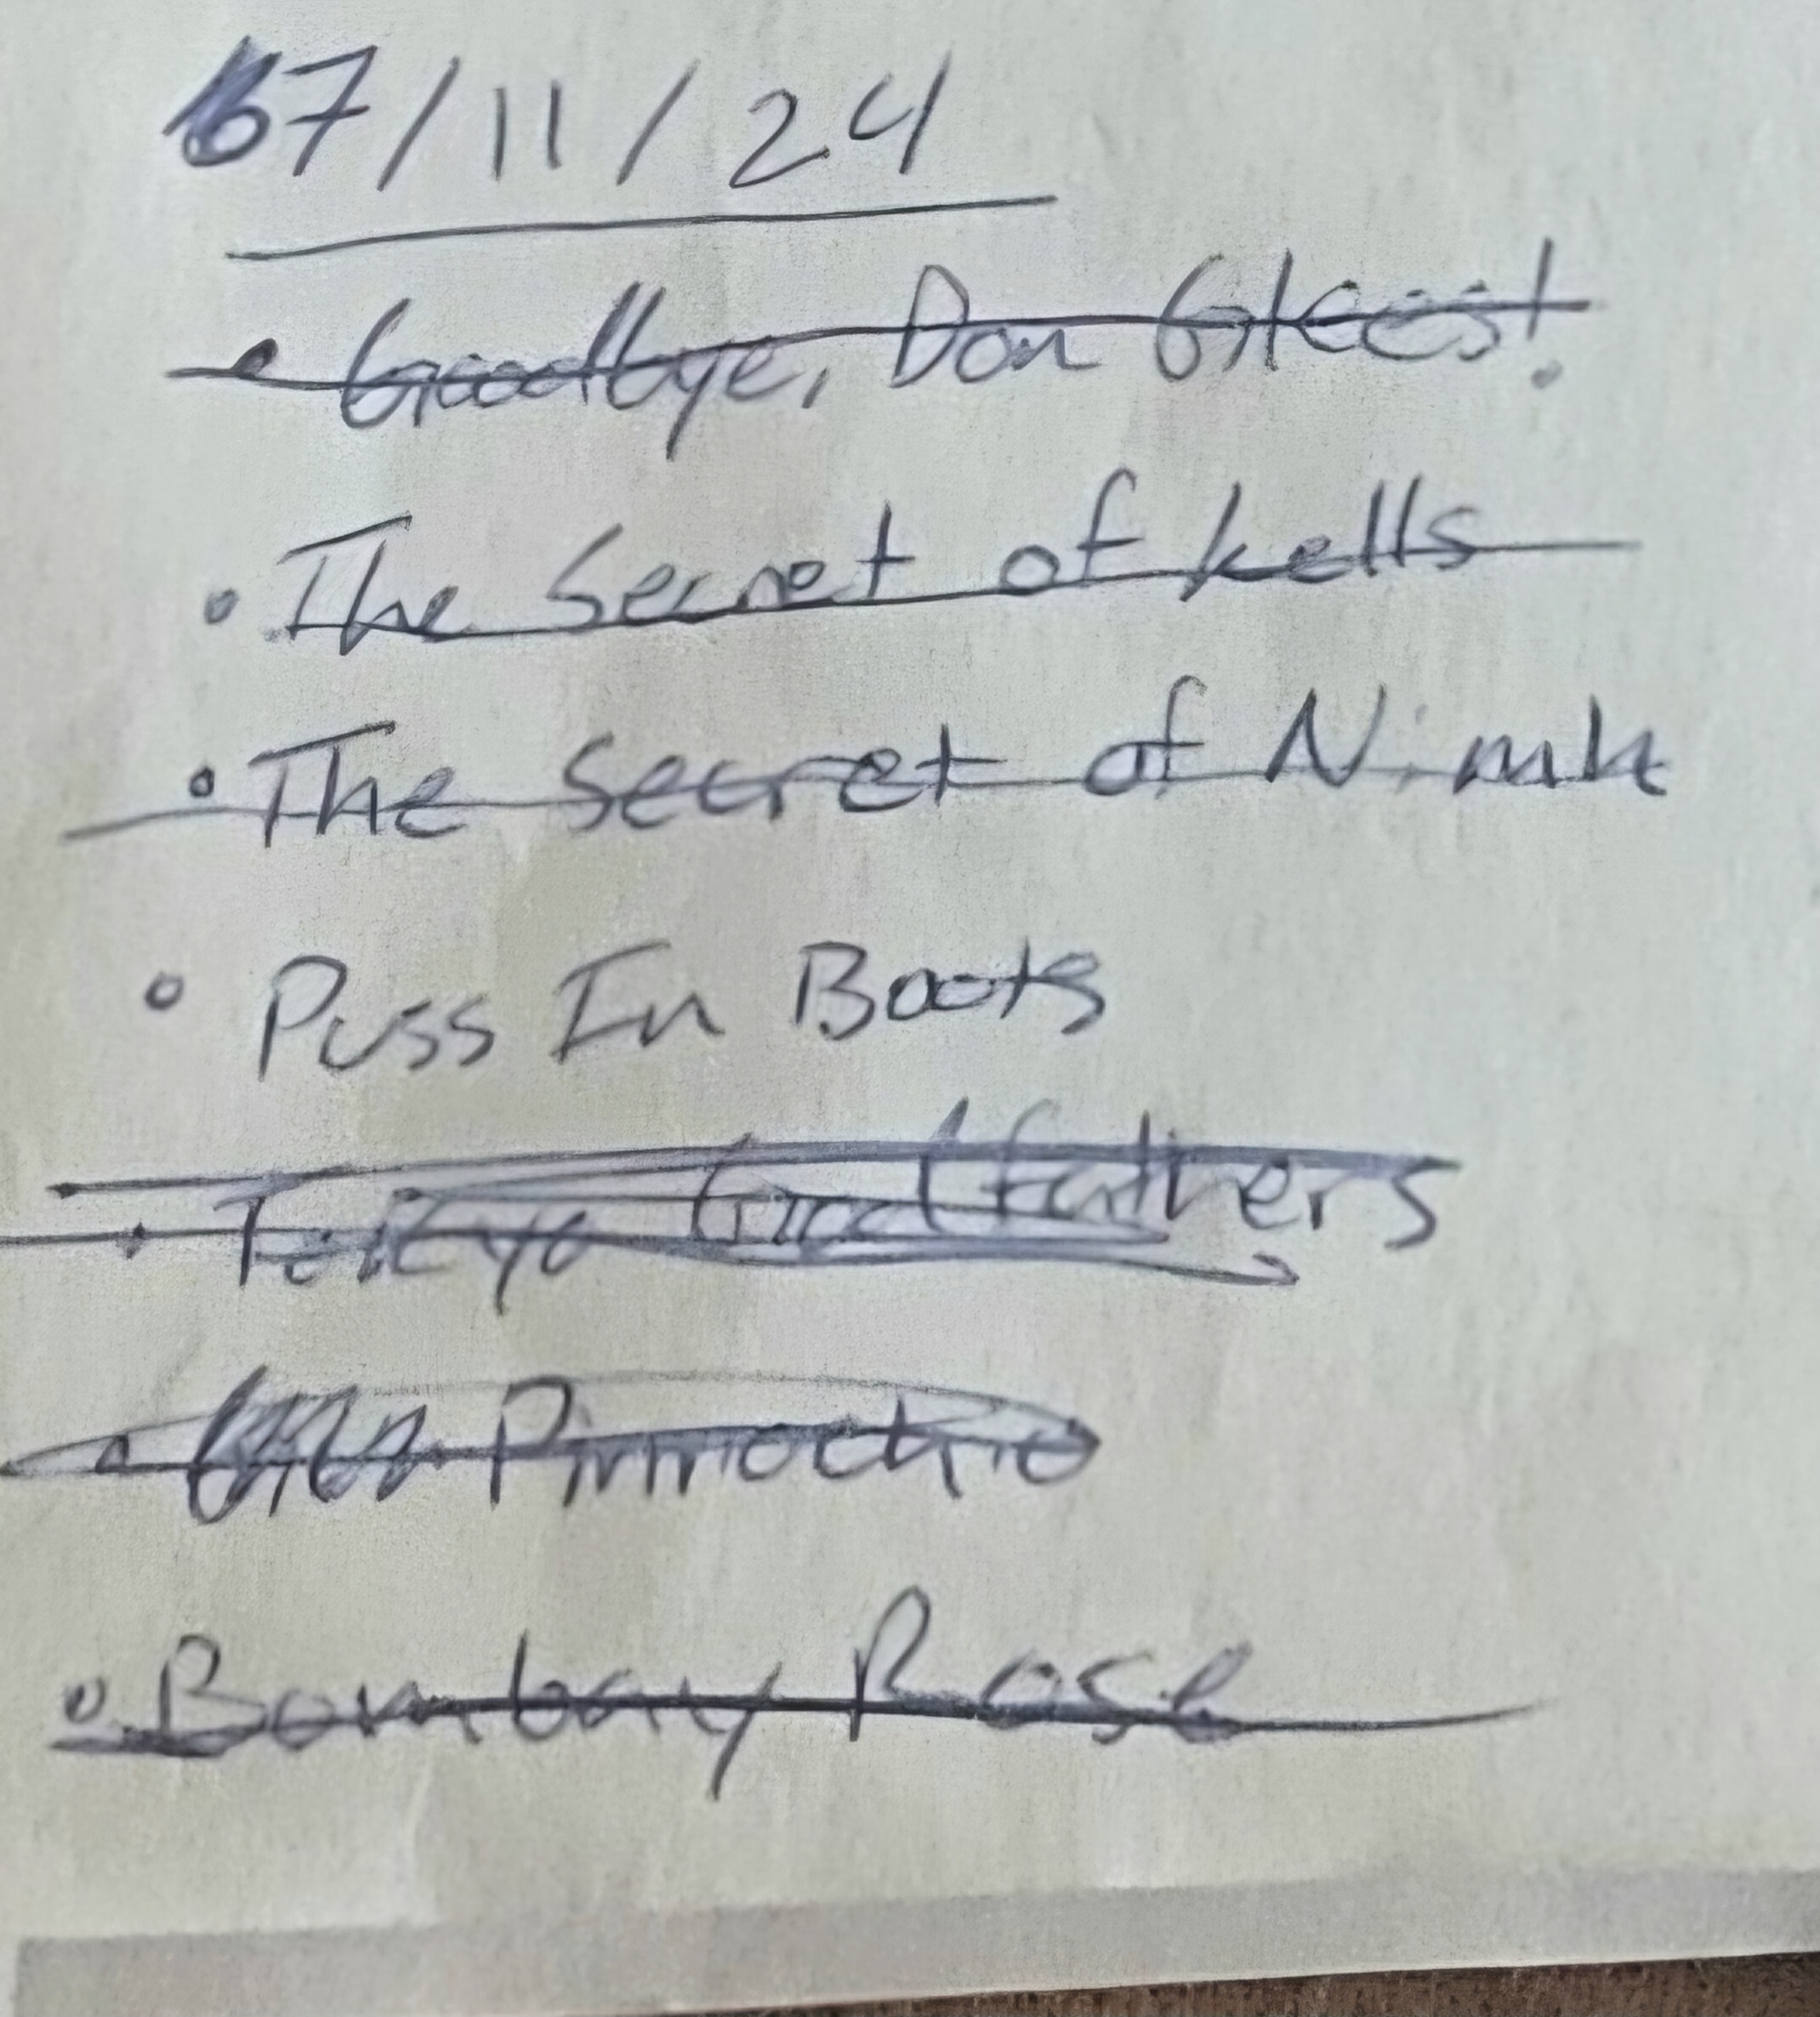 07/11/24
• Goodbye, Don Glees!
• The Secret of Kells
• The Secret of Nimh
• Puss In Boots
• Tokyo Godfathers
• Pinnochio
• Bombay Rose